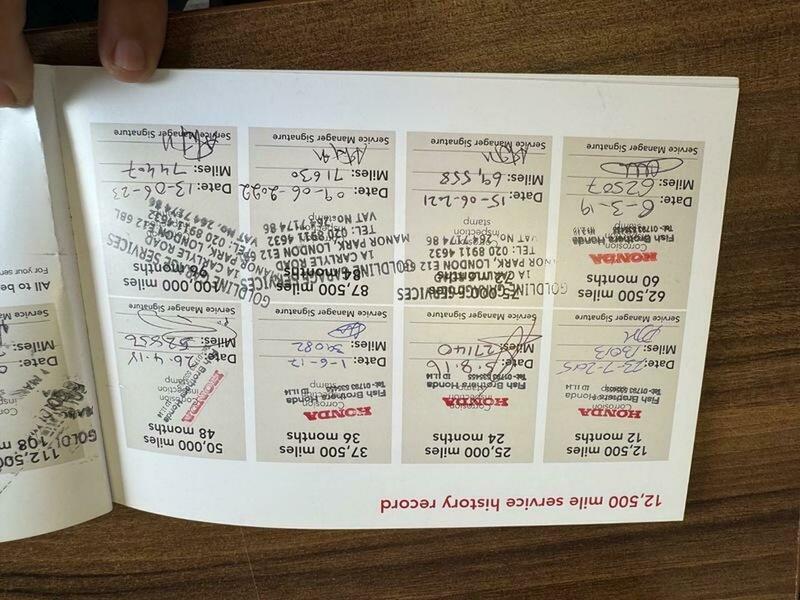 12,500 mile service history record
12,500 miles
12 months
HONDA
Corrosion
inspection
stamp
Fish Brothers Honda
Date: 23-7-2015
Miles: 13013
Service Manager Signature
25,000 miles
24 months
HONDA
Corrosion
Fish Brothers Honda
Tel: 01793 535455 ID L14
Date: 5.8.16
Miles: 27140
Service Manager Signature
37,500 miles
36 months
HONDA
Corrosion
inspection
stamp
Fish Brothers Honda
Tel: 01793 535455 ID L14
Date: 1-6-17
Miles: 39082
Service Manager Signature
50,000 miles
48 months
HONDA
Corrosion
inspection
stamp
Fish Brothers Honda
Date: 26.4.18
Miles:
Service Manager Signature
62,500 miles
60 months
HONDA
Fish Brothers Honda
Date: 8-3-19
Miles: 62507
Service Manager Signature
75,000 miles
72 months
GOLDLINE GARAGE SERVICES
1A CARLYLE ROAD
MANOR PARK, LONDON E12
TEL: 020 8911 4632
VAT No. 264 7174 86
stamp
Date: 15-06-2021
Miles: 69,558
Service Manager Signature
87,500 miles
84 months
GOLDLINE GARAGE SERVICES
1A CARLYLE ROAD
MANOR PARK, LONDON E12
TEL: 020 8911 4632
VAT No. 264 7174 86
Date: 09-06-2022
Miles: 71630
Service Manager Signature
100,000 miles
96 months
GOLDLINE GARAGE SERVICES
1A CARLYLE ROAD
MANOR PARK, LONDON E12 6BL
TEL: 020 8911 4632
VAT No. 264 7174 86
Date: 13-06-23
Miles: 74407
Service Manager Signature
112,500
108 m
GOLDL
Date:
Miles:
Service Manager
All to be
For your ser